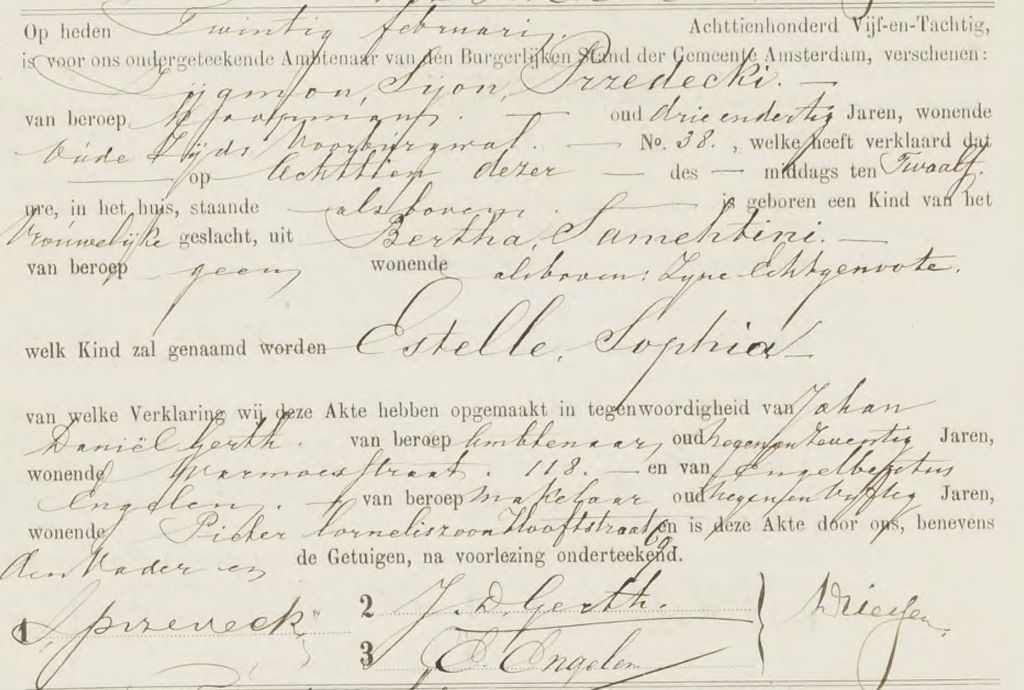 Op heden Twintig februari. Achttienhonderd Vijf-en-Tachtig,
is voor ons ondergeteekende Ambtenaar van den Burgerlijken Stand der Gemeente Amsterdam, verschenen:
Zijgmon, Sijon, Przedecki.
van beroep Koopman. oud drie endertig Jaren, wonende
Oude Zijds Voorburgwal. No. 38. , welke heeft verklaard dat
op Achttien dezer des middags ten Twaalf
ure, in het huis, staande alsboven is geboren een Kind van het
Vrouwelijke geslacht, uit Bertha, Samehtini.
van beroep geen wonende alsboven: Zyne Echtgenoote.
welk Kind zal genaamd worden Estelle, Sophia
van welke Verklaring wij deze Akte hebben opgemaakt in tegenwoordigheid van Johan
Daniël Gerth. van beroep Ambtenaar, oud negen en Twentig Jaren,
wonende Warmoesstraat. 118. en van Engelbertus
Engelen. van beroep makelaar oud negen en vyftig Jaren,
wonende Pieter Corneliszoon Hooftstraat en is deze Akte door ons, benevens
den Vader en de Getuigen, na voorlezing onderteekend.
1 2 J. D. Gerth.
3 E. Engelen